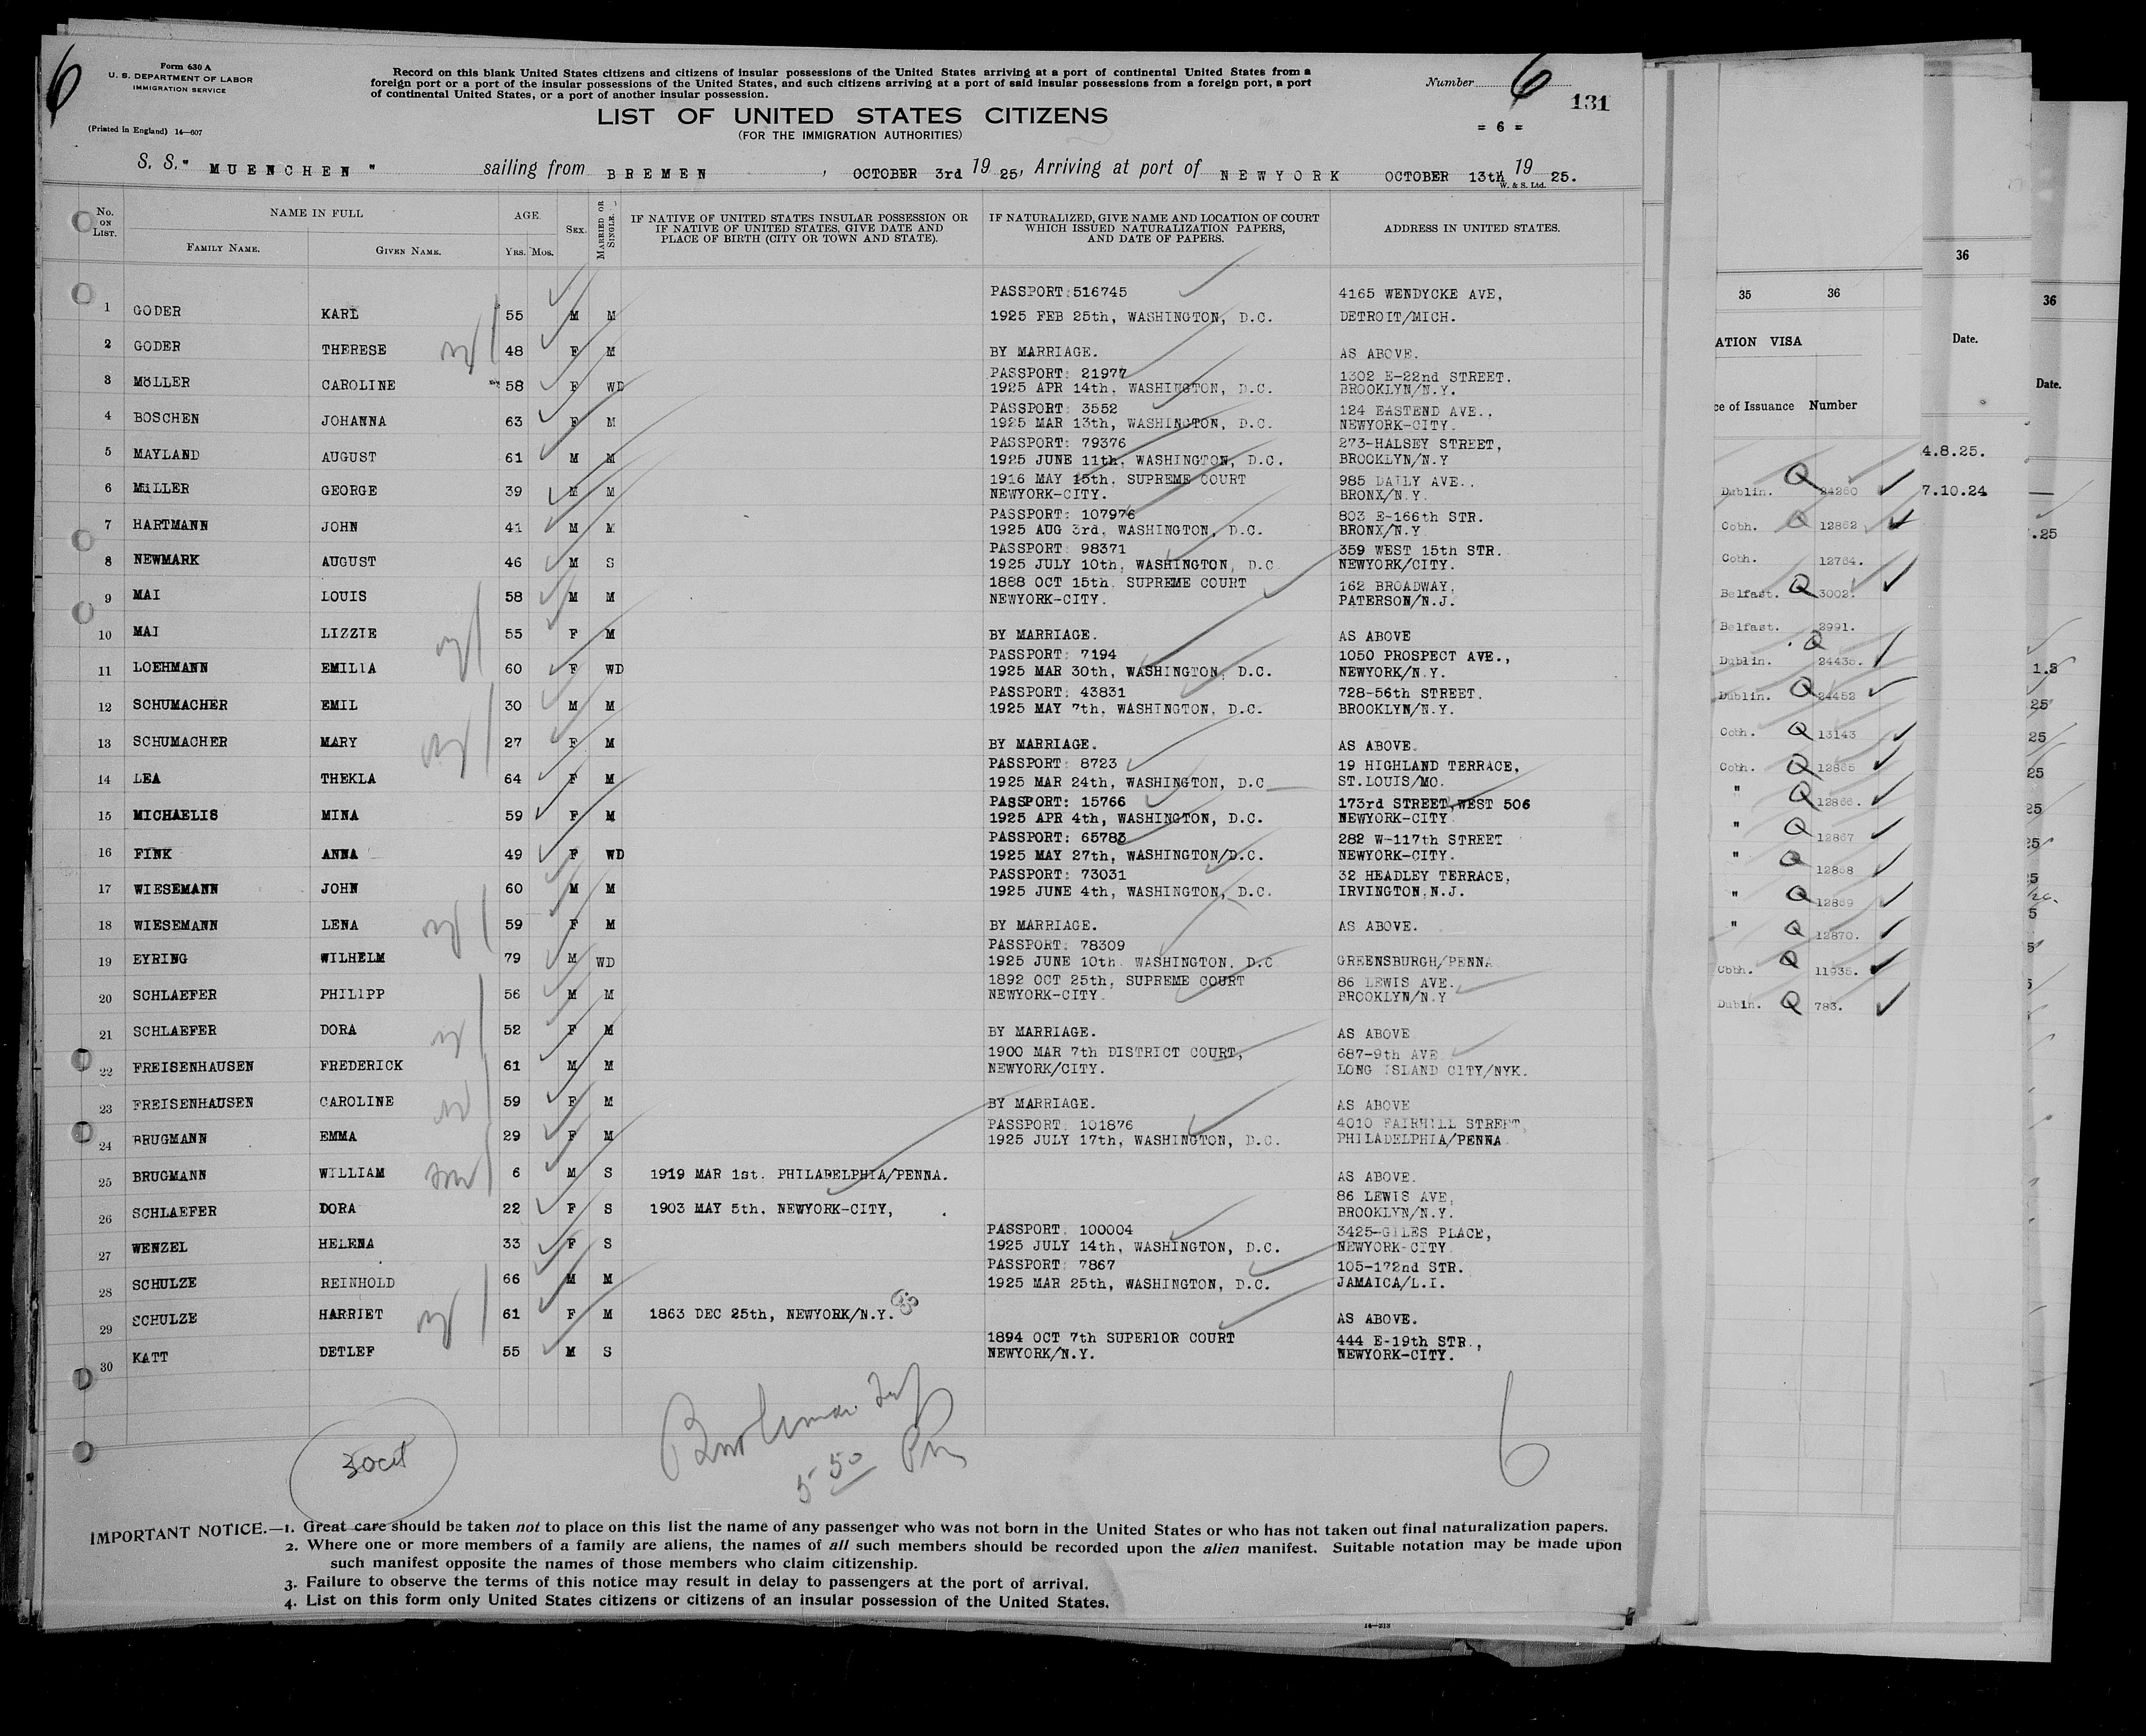 6
Form 630 A
U. S. DEPARTMENT OF LABOR
IMMIGRATION SERVICE
(Printed in England) 14—607
Record on this blank United States citizens and citizens of insular possessions of the United States arriving at a port of continental United States from a
foreign port or a port of the insular possessions of the United States, and such citizens arriving at a port of said insular possessions from a foreign port, a port
of continental United States, or a port of another insular possession.
Number 6
131
LIST OF UNITED STATES CITIZENS
(FOR THE IMMIGRATION AUTHORITIES)
= 6 =
S. S. " MUENCHEN " sailing from BREMEN , OCTOBER 3rd 19 25, Arriving at port of NEWYORK OCTOBER 13th 19 25.
W. & S. Ltd.
No. ON LIST. NAME IN FULL FAMILY NAME. GIVEN NAME. AGE. YRS. MOS. SEX. MARRIED OR SINGLE. IF NATIVE OF UNITED STATES INSULAR POSSESSION OR IF NATIVE OF UNITED STATES, GIVE DATE AND PLACE OF BIRTH (CITY OR TOWN AND STATE). IF NATURALIZED, GIVE NAME AND LOCATION OF COURT WHICH ISSUED NATURALIZATION PAPERS, AND DATE OF PAPERS. ADDRESS IN UNITED STATES.
PASSPORT:516745 4165 WENDYCKE AVE,
1 GODER KARL 55 M M 1925 FEB 25th, WASHINGTON, D.C. DETROIT/MICH.
2 GODER THERESE 48 F M BY MARRIAGE. AS ABOVE.
PASSPORT: 21977 1302 E-22nd STREET.
3 MöLLER CAROLINE 58 F WD 1925 APR 14th, WASHINGTON, D.C. BROOKLYN/N.Y.
PASSPORT: 3552 124 EASTEND AVE.,
4 BOSCHEN JOHANNA 63 F M 1925 MAR 13th, WASHINGTON, D.C. NEWYORK-CITY.
PASSPORT: 79376 273-HALSEY STREET,
5 MAYLAND AUGUST 61 M M 1925 JUNE 11th, WASHINGTON, D.C. BROOKLYN/N.Y
1916 MAY 15th. SUPREME COURT 985 DAILY AVE..
6 MiLLER GEORGE 39 M M NEWYORK-CITY. BRONX/N.Y.
PASSPORT: 107976 803 E-166th STR.
7 HARTMANN JOHN 41 M M 1925 AUG 3rd, WASHINGTON, D.C. BRONX/N.Y
PASSPORT: 98371 359 WEST 15th STR.
8 NEWMARK AUGUST 46 M S 1925 JULY 10th, WASHINGTON, D.C NEWYORK/CITY.
1888 OCT 15th. SUPREME COURT 162 BROADWAY,
9 MAI LOUIS 58 M M NEWYORK-CITY. PATERSON/N.J.
10 MAI LIZZIE 55 F M BY MARRIAGE. AS ABOVE
PASSPORT: 7194 1050 PROSPECT AVE.,
11 LOEHMANN EMILIA 60 F WD 1925 MAR 30th, WASHINGTON, D.C. NEWYORK/N.Y.
PASSPORT: 43831 728-56th STREET.
12 SCHUMACHER EMIL 30 M M 1925 MAY 7th, WASHINGTON, D.C. BROOKLYN/N.Y.
13 SCHUMACHER MARY 27 F M BY MARRIAGE. AS ABOVE.
PASSPORT: 8723 19 HIGHLAND TERRACE,
14 LEA THEKLA 64 F M 1925 MAR 24th, WASHINGTON, D.C ST.LOUIS/MO.
PASSPORT: 15766 173rd STREET,WEST 506
15 MICHAELIS MINA 59 F M 1925 APR 4th, WASHINGTON, D.C. NEWYORK-CITY
PASSPORT: 65783 282 W-117th STREET
16 FINK ANNA 49 F WD 1925 MAY 27th, WASHINGTON/D.C. NEWYORK-CITY.
PASSPORT: 73031 32 HEADLEY TERRACE,
17 WIESEMANN JOHN 60 M M 1925 JUNE 4th, WASHINGTON, D.C. IRVINGTON.N.J.
18 WIESEMANN LENA 59 F M BY MARRIAGE. AS ABOVE.
PASSPORT: 78309
19 EYRING WILHELM 79 M WD 1925 JUNE 10th. WASHINGTON, D.C GREENSBURGH/PENNA
1892 OCT 25th, SUPREME COURT 86 LEWIS AVE.
20 SCHLAEFER PHILIPP 56 M M NEWYORK-CITY. BROOKLYN/N.Y
21 SCHLAEFER DORA 52 F M BY MARRIAGE. AS ABOVE
1900 MAR 7th DISTRICT COURT, 687-9th AVE
22 FREISENHAUSEN FREDERICK 61 M M NEWYORK/CITY. LONG ISLAND CITY/NYK.
23 FREISENHAUSEN CAROLINE 59 F M BY MARRIAGE. AS ABOVE
PASSPORT: 101876 4010 FAIRHILL STREET,
24 BRUGMANN EMMA 29 F M 1925 JULY 17th, WASHINGTON, D.C. PHILADELPHIA/PENNA
25 BRUGMANN WILLIAM 6 M S 1919 MAR 1st. PHILADELPHIA/PENNA. AS ABOVE.
86 LEWIS AVE,
26 SCHLAEFER DORA 22 F S 1903 MAY 5th. NEWYORK-CITY, BROOKLYN/N.Y.
PASSPORT. 100004 3425-GILES PLACE,
27 WENZEL HELENA 33 F S 1925 JULY 14th, WASHINGTON, D.C. NEWYORK-CITY
PASSPORT: 7867 105-172nd STR.
28 SCHULZE REINHOLD 66 M M 1925 MAR 25th, WASHINGTON, D.C. JAMAICA/L.I.
29 SCHULZE HARRIET 61 F M 1863 DEC 25th, NEWYORK/N.Y. AS ABOVE.
1894 OCT 7th SUPERIOR COURT 444 E-19th STR.,
30 KATT DETLEF 55 M S NEWYORK/N.Y. NEWYORK-CITY.
5 50 Pm
6
IMPORTANT NOTICE.—1. Great care should be taken not to place on this list the name of any passenger who was not born in the United States or who has not taken out final naturalization papers.
2. Where one or more members of a family are aliens, the names of all such members should be recorded upon the alien manifest. Suitable notation may be made upon
such manifest opposite the names of those members who claim citizenship.
3. Failure to observe the terms of this notice may result in delay to passengers at the port of arrival.
4. List on this form only United States citizens or citizens of an insular possession of the United States.
14—213
36
35 36
36
ATION VISA Date.
Date.
ce of Issuance Number
4.8.25.
Dublin. Q 24260 7.10.24
Cobh. Q 12862
.25
Cobh. 12764.
Belfast. Q 3002.
Belfast. 2991.
Dublin. Q 24435.
Dublin. Q 24452
25
Cobh. Q 13143
25
Cobh. Q 12865
25
" Q 12866.
25
" Q 12867
" Q 12868
" Q 12869
" Q 12870.
Cobh. Q 11935.
Dublin. Q 783.